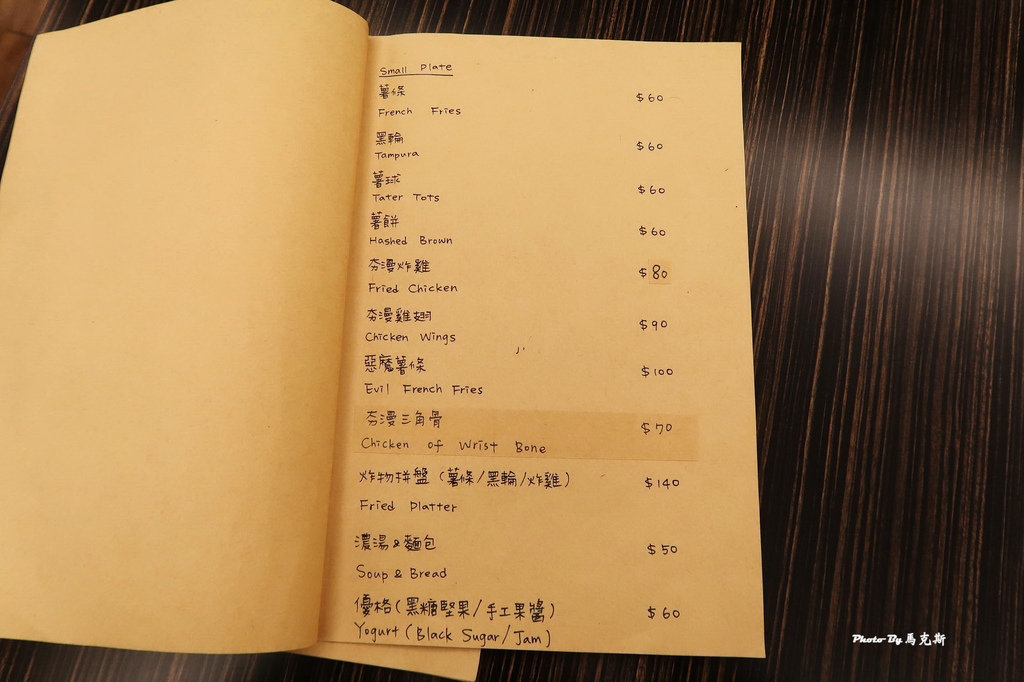 Small Plate
薯條 $60
French Fries
黑輪 $60
Tampura
薯球 $60
Tater Tots
薯餅 $60
Hashed Brown
夯漫炸雞 $80
Fried Chicken
夯漫雞翅 $90
Chicken Wings
惡魔薯條 $100
Evil French Fries
夯漫三角骨 $70
Chicken of Wrist Bone
炸物拼盤(薯條/黑輪/炸雞) $140
Fried Platter
濃湯&麵包 $50
Soup & Bread
優格(黑糖堅果/手工果醬) $60
Yogurt (Black Sugar/Jam)
Photo By 馬克斯